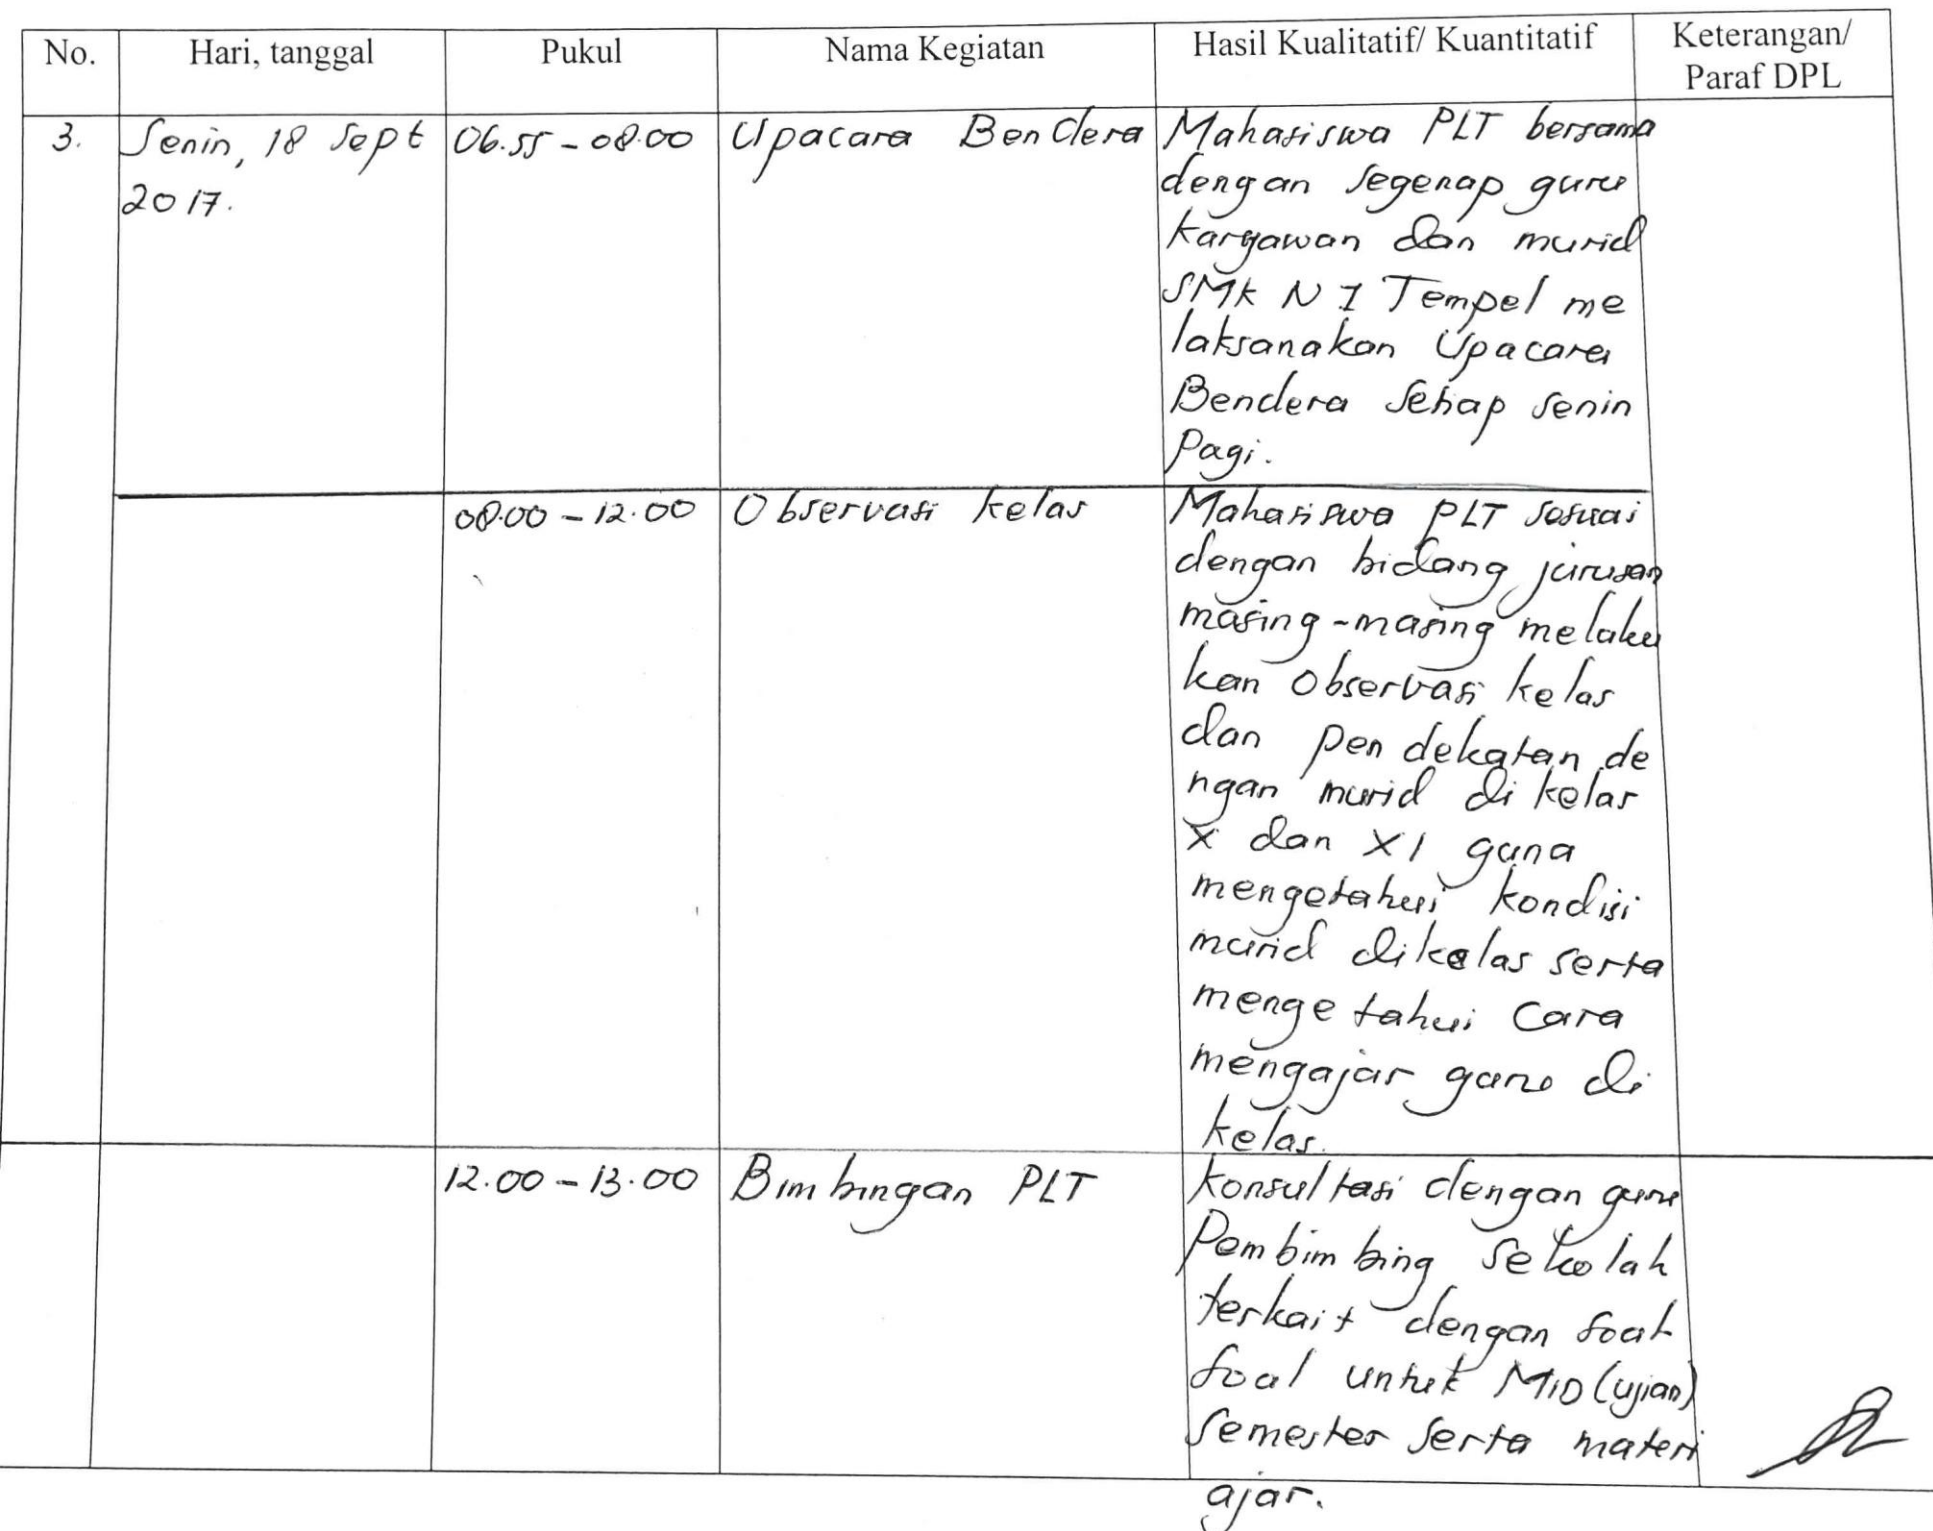 No. Hari, tanggal Pukul Nama Kegiatan Hasil Kualitatif/ Kuantitatif Keterangan/
Paraf DPL
3. Senin, 18 Sept 06.55 - 08.00 Upacara Bendera Mahasiswa PLT bersama
2017. dengan segenap guru
karyawan dan murid
SMK N 1 Tempel me
laksanakan Upacara
Bendera Setiap Senin
Pagi.
08.00 - 12.00 Observasi kelas Mahasiswa PLT sesuai
dengan bidang jurusan
masing-masing melaku
kan Observasi kelas
dan pendekatan de
ngan murid di kelas
X dan XI guna
mengetahui kondisi
murid dikelas serta
mengetahui Cara
mengajar guru di
kelas.
12.00 - 13.00 Bimbingan PLT Konsultasi dengan guru
Pembimbing Sekolah
terkait dengan soal
soal untuk MID (ujian)
Semester Serta materi
ajar.